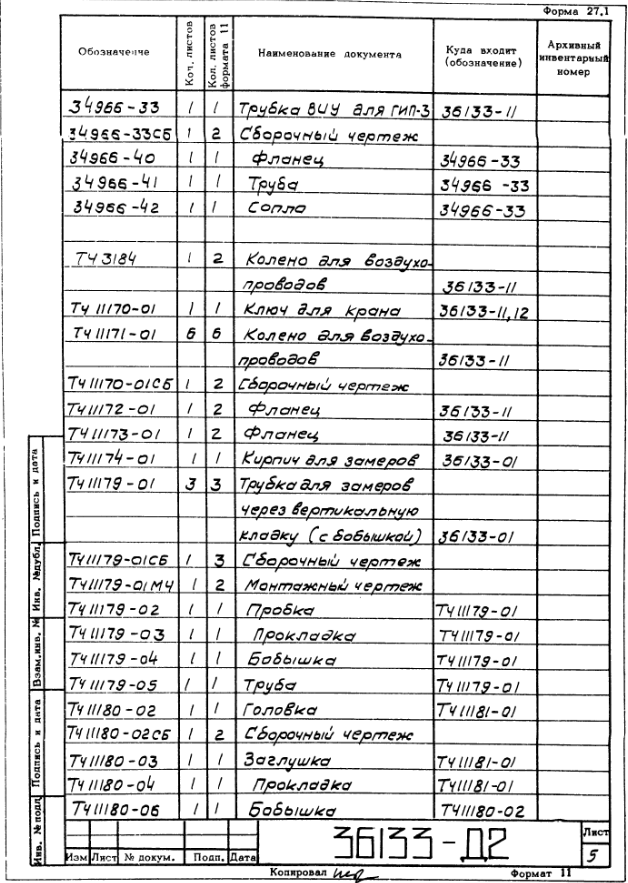 Форма 27.1
Обозначение | Кол. листов | Кол. листов формата 11 | Наименование документа | Куда входит (обозначение) | Архивный инвентарный номер
34966-33 | 1 | 1 | Трубка ВИУ для ГИП-3 | 36133-11
34966-33СБ | 1 | 2 | Сборочный чертеж
34966-40 | 1 | 1 | Фланец | 34966-33
34966-41 | 1 | 1 | Труба | 34966-33
34966-42 | 1 | 1 | Сопло | 34966-33
ТЧ3184 | 1 | 2 | Колено для воздухо-
проводов | 36133-11
ТЧ11170-01 | 1 | 1 | Ключ для крана | 36133-11,12
ТЧ11171-01 | 6 | 6 | Колено для воздухо-
проводов | 36133-11
ТЧ11170-01СБ | 1 | 2 | Сборочный чертеж
ТЧ11172-01 | 1 | 2 | Фланец | 36133-11
ТЧ11173-01 | 1 | 2 | Фланец | 36133-11
ТЧ11174-01 | 1 | 1 | Кирпич для замеров | 36133-01
ТЧ11179-01 | 3 | 3 | Трубка для замеров
через вертикальную
кладку (с бобышкой) | 36133-01
ТЧ11179-01СБ | 1 | 3 | Сборочный чертеж
ТЧ11179-01МЧ | 1 | 2 | Монтажный чертеж
ТЧ11179-02 | 1 | 1 | Пробка | ТЧ11179-01
ТЧ11179-03 | 1 | 1 | Прокладка | ТЧ11179-01
ТЧ11179-04 | 1 | 1 | Бобышка | ТЧ11179-01
ТЧ11179-05 | 1 | 1 | Труба | ТЧ11179-01
ТЧ11180-02 | 1 | 1 | Головка | ТЧ11181-01
ТЧ11180-02СБ | 1 | 2 | Сборочный чертеж
ТЧ11180-03 | 1 | 1 | Заглушка | ТЧ11181-01
ТЧ11180-04 | 1 | 1 | Прокладка | ТЧ11181-01
ТЧ11180-06 | 1 | 1 | Бобышка | ТЧ11180-02
Инв. № подл. | Подпись и дата | Взам.инв. № | Инв. №дубл. | Подпись и дата
36133-Д2
Лист
5
Изм | Лист | № докум. | Подп. | Дата
Копировал
Формат 11